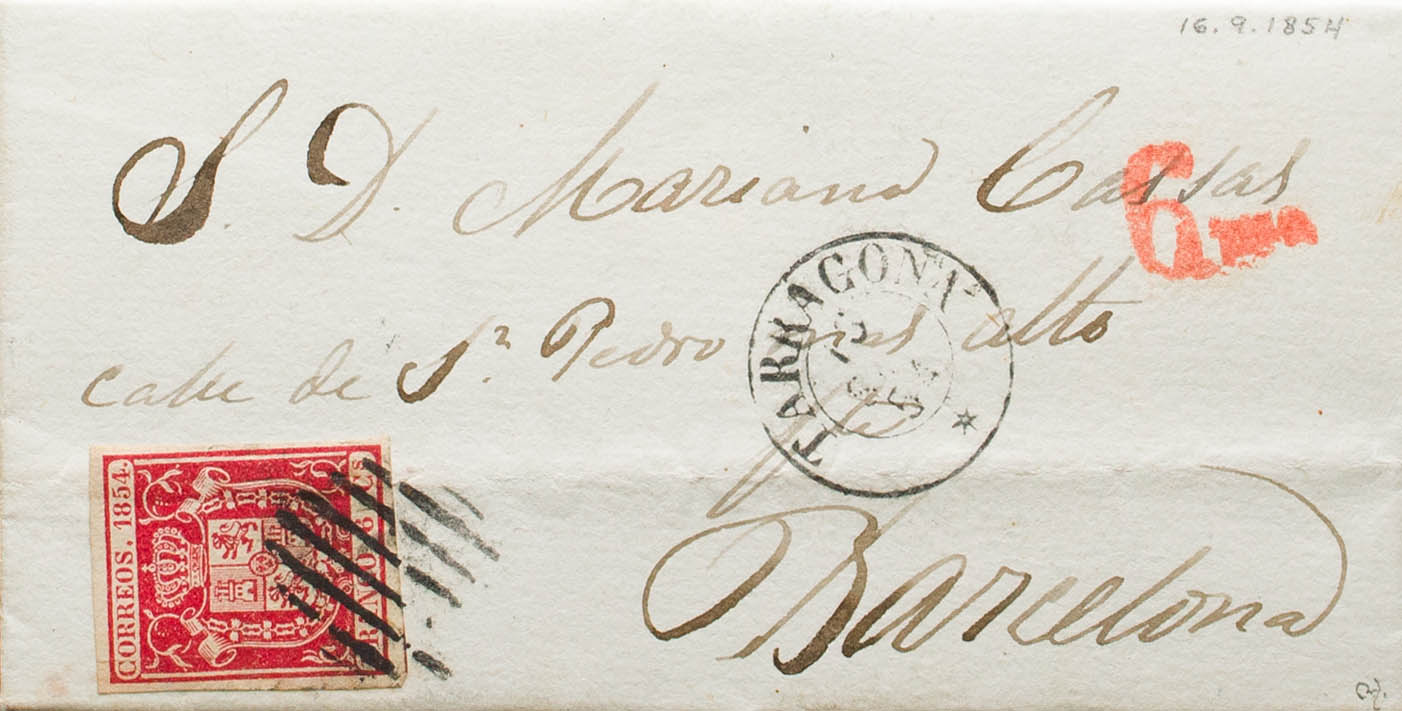 16.9.1854
S. D. Mariano Cassas
6
calle de Sn. Pedro mas alto
TARRAGONA
Barcelona
CORREOS. 1854.
FRANCO 6 Cs.